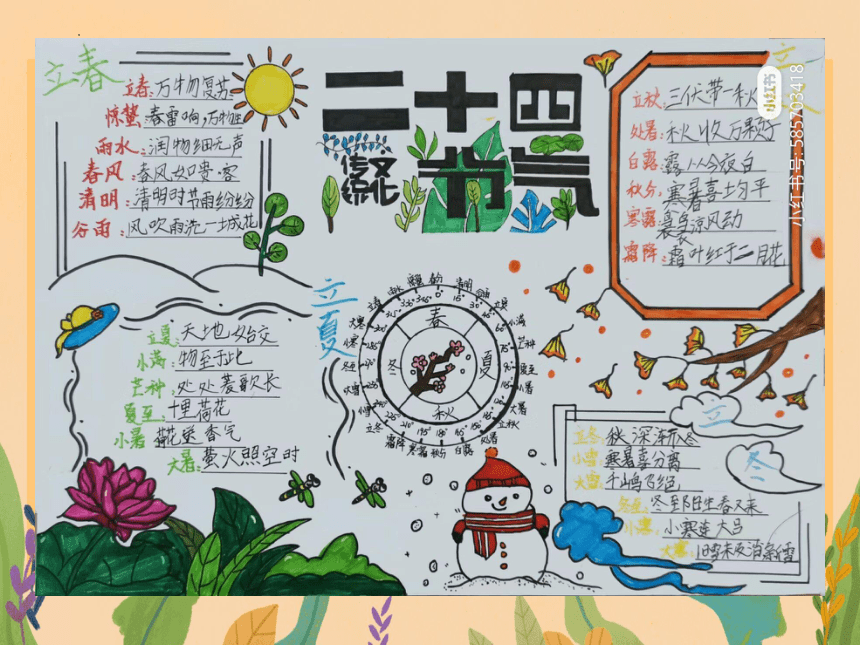 立春
立春:万物复苏
惊蛰:春雷响,万物生
雨水:润物细无声
春风:春风如贵客
清明:清明时节雨纷纷
谷雨:风吹雨洗一城花
二十四
节气
传统
文化
立秋:三伏带一秋
处暑:秋收万颗子
白露:露从今夜白
秋分:寒暑喜均平
寒露:袅袅凉风动
霜降:霜叶红于二月花
小红书
小红书号:585703418
立夏
立夏:天地始交
小满:物至于此
芒种:处处菱歌长
夏至:十里荷花
小暑:荷花送香气
大暑:萤火照空时
春
夏
秋
冬
清明
立夏
小满
芒种
夏至
小暑
大暑
立秋
处暑
白露
秋分
寒露
霜降
立冬
冬至
小寒
大寒
立冬
立冬:秋深渐入冬
小雪:寒暑喜分离
大雪:千鸟飞绝
冬至:冬至阳生春又来
小寒:小寒连大吕
大寒:旧雪未及消新雪